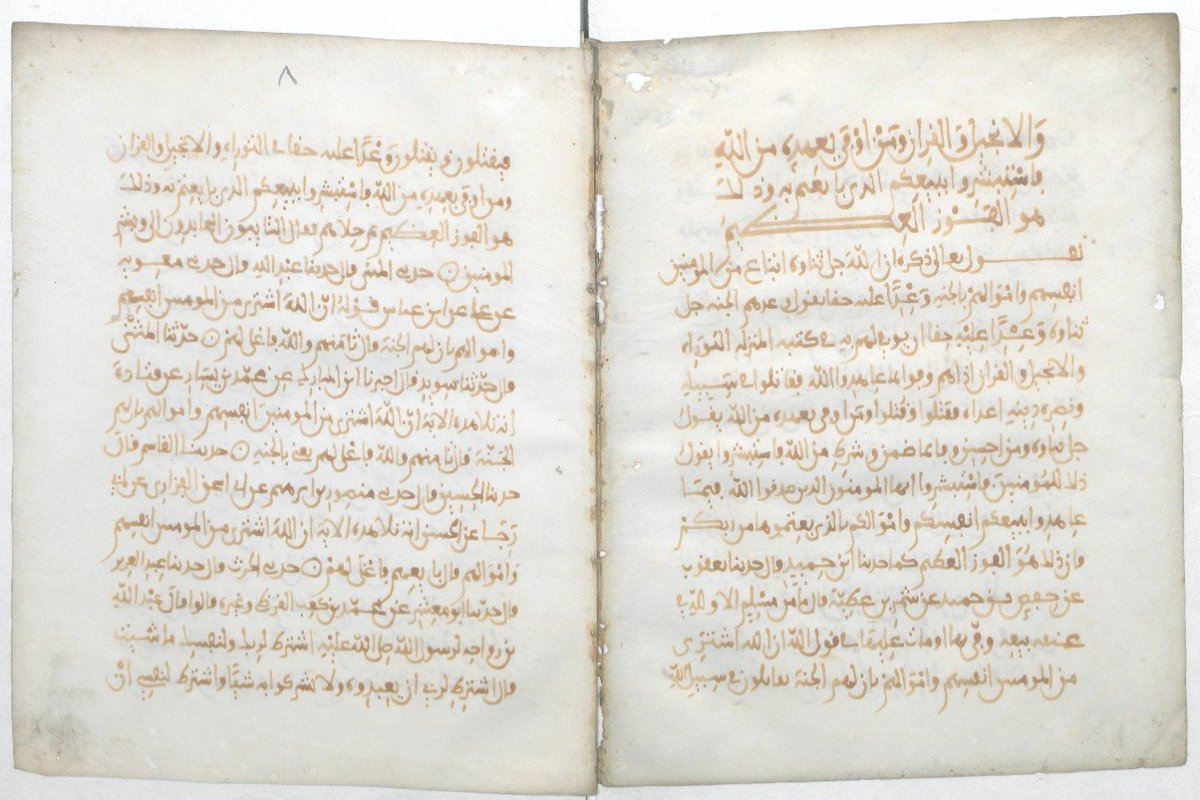 والانجيل والقران ومن اوفى بعهده من الله
فاستبشروا ببيعكم الذى بايعتم به وذلك
هو الفوز العظيم
يقول تعالى ذكره ان الله جل ثناوه ابتاع من المومنين
انفسهم واموالهم بالجنة وعدا عليه حقا يقول وعدهم الجنة جل
ثناوه وعدا عليه حقا ان يوفى لهم به فى كتبه المنزلة التوراة
والانجيل والقران اذا هم وفوا بما عاهدوا الله فقاتلوا فى سبيله
ونصرة دينه اعداه فقتلوا وقتلوا ومن اوفى بعهده من الله يقول
جل ثناوه ومن احسن وفا بما ضمن وشرط من الله فاستبشروا يقول
ذلك للمومنين فاستبشروا ايها المومنون الذين صدقوا الله فيما
عاهدوا ببيعكم انفسكم واموالكم بالذى بعتموها من ربكم
فان ذلك هو الفوز العظيم كما حدثنا ابن حميد قال حدثنا يعقوب
عن جعفر بن حميد عن شمر بن عطية قال ما من مسلم الا ولله فى
عنقه بيعة وفى بها او مات عليها فى قول الله ان الله اشترى
من المومنين انفسهم واموالهم بان لهم الجنة يقاتلون فى سبيل الله
٨
فيقتلون ويقتلون وعدا عليه حقا فى التوراة والانجيل والقران
ومن اوفى بعهده من الله فاستبشروا ببيعكم الذى بايعتم به وذلك
هو الفوز العظيم ثم حلاهم فقال التايبون العابدون الى وبشر
المومنين حدثنى المثنى قال حدثنا عبد الله قال حدثنى معوية
عن على عن ابن عباس قوله ان الله اشترى من المومنين انفسهم
واموالهم بان لهم الجنة قال ثامنهم والله فاغلى لهم حدثنا المثنى
قال حدثنا سويد قال اخبرنا ابن المبارك عن محمد بن يسار عن قتادة
انه تلا هذه الاية ان الله اشترى من المومنين انفسهم واموالهم بان لهم
الجنة قال ثامنهم والله فاغلى لهم يعنى بالجنة حدثنا القاسم قال
حدثنا الحسين قال حدثنى منصور بن ابرهيم عن ابى اسحق الفزارى عن ابى
رجا عن الحسن انه تلا هذه الاية ان الله اشترى من المومنين انفسهم
واموالهم قال بايعهم فاغلى لهم حدثنى الحرث قال حدثنا عبد العزيز
قال حدثنا ابو معشر عن محمد بن كعب القرظى وغيره قالوا قال عبد الله
بن رواحه لرسول الله صلى الله عليه اشترط لربك ولنفسك ما شيت
قال اشترط لربى ان تعبدوه ولا تشركوا به شيا واشترط لنفسى ان